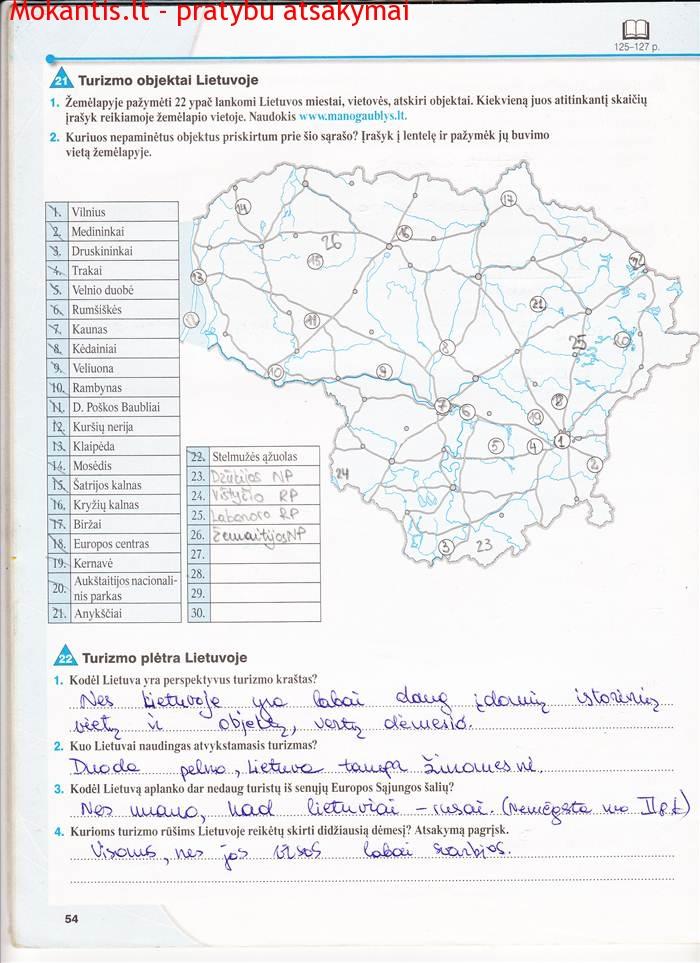 Mokantis.lt - pratybu atsakymai
125–127 p.
21 Turizmo objektai Lietuvoje
1. Žemėlapyje pažymėti 22 ypač lankomi Lietuvos miestai, vietovės, atskiri objektai. Kiekvieną juos atitinkantį skaičių
įrašyk reikiamoje žemėlapio vietoje. Naudokis www.manogaublys.lt.
2. Kuriuos nepaminėtus objektus priskirtum prie šio sąrašo? Įrašyk į lentelę ir pažymėk jų buvimo
vietą žemėlapyje.
1. Vilnius
2. Medininkai
3. Druskininkai
4. Trakai
5. Velnio duobė
6. Rumšiškės
7. Kaunas
8. Kėdainiai
9. Veliuona
10. Rambynas
11. D. Poškos Baubliai
12. Kuršių nerija
13. Klaipėda
14. Mosėdis
15. Šatrijos kalnas
16. Kryžių kalnas
17. Biržai
18. Europos centras
19. Kernavė
20. Aukštaitijos nacionali-
nis parkas
21. Anykščiai
22. Stelmužės ąžuolas
23. Dzūkijos NP
24. Vištyčio RP
25. Labanoro RP
26. Žemaitijos NP
27.
28.
29.
30.
14
17
26
16
15
13
21
11
25
20
8
10
9
7
6
18
19
1
5
4
2
24
3
23
22 Turizmo plėtra Lietuvoje
1. Kodėl Lietuva yra perspektyvus turizmo kraštas?
Nes Lietuvoje yra labai daug įdomių istorinių
vietų ir objektų, vertų dėmesio.
2. Kuo Lietuvai naudingas atvykstamasis turizmas?
Duoda pelno, Lietuva tampa žinomesnė.
3. Kodėl Lietuvą aplanko dar nedaug turistų iš senųjų Europos Sąjungos šalių?
Nes mano, kad lietuviai – rusai. (Nemėgsta nuo II p.k)
4. Kurioms turizmo rūšims Lietuvoje reikėtų skirti didžiausią dėmesį? Atsakymą pagrįsk.
Visoms, nes jos visos labai svarbios.
54